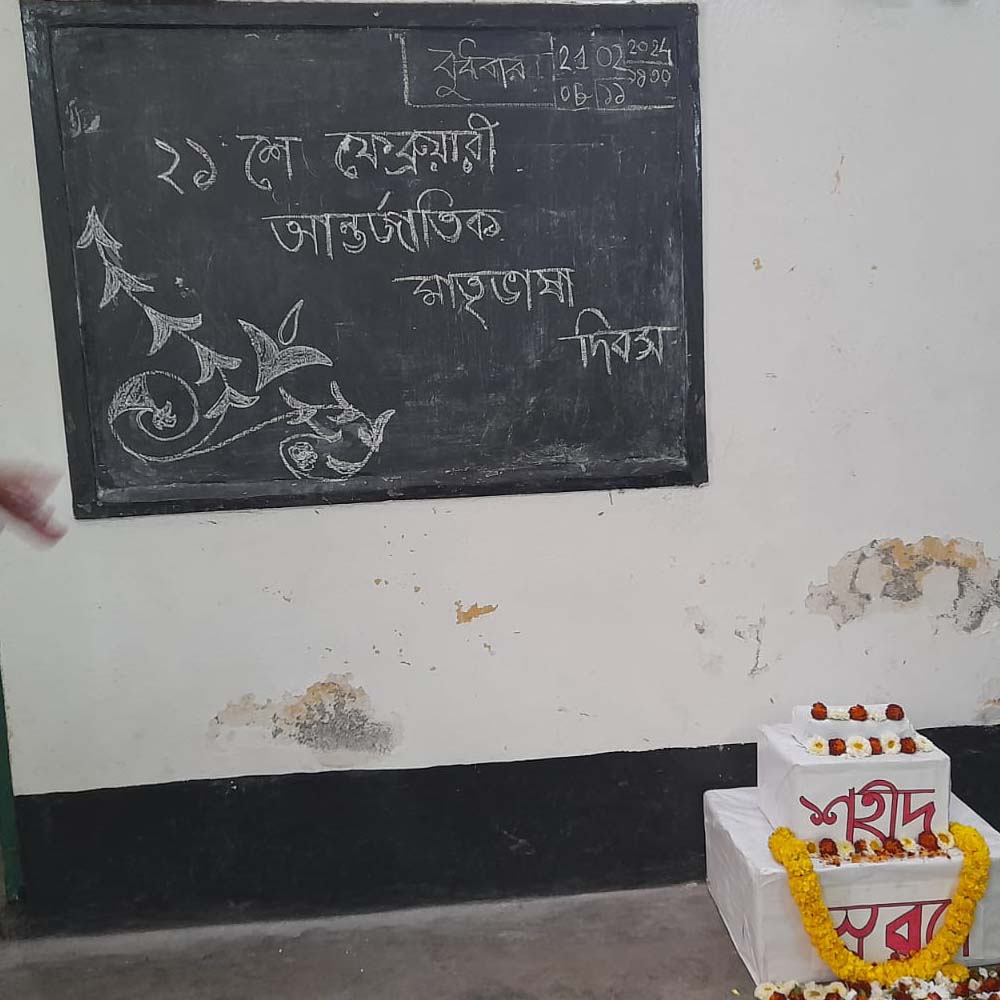 বুধবার 21 02 2024
০৮ ১১ ১৪৩০
২১ শে ফেব্রুয়ারী
আন্তর্জাতিক
মাতৃভাষা
দিবস
শহীদ
স্মরণে